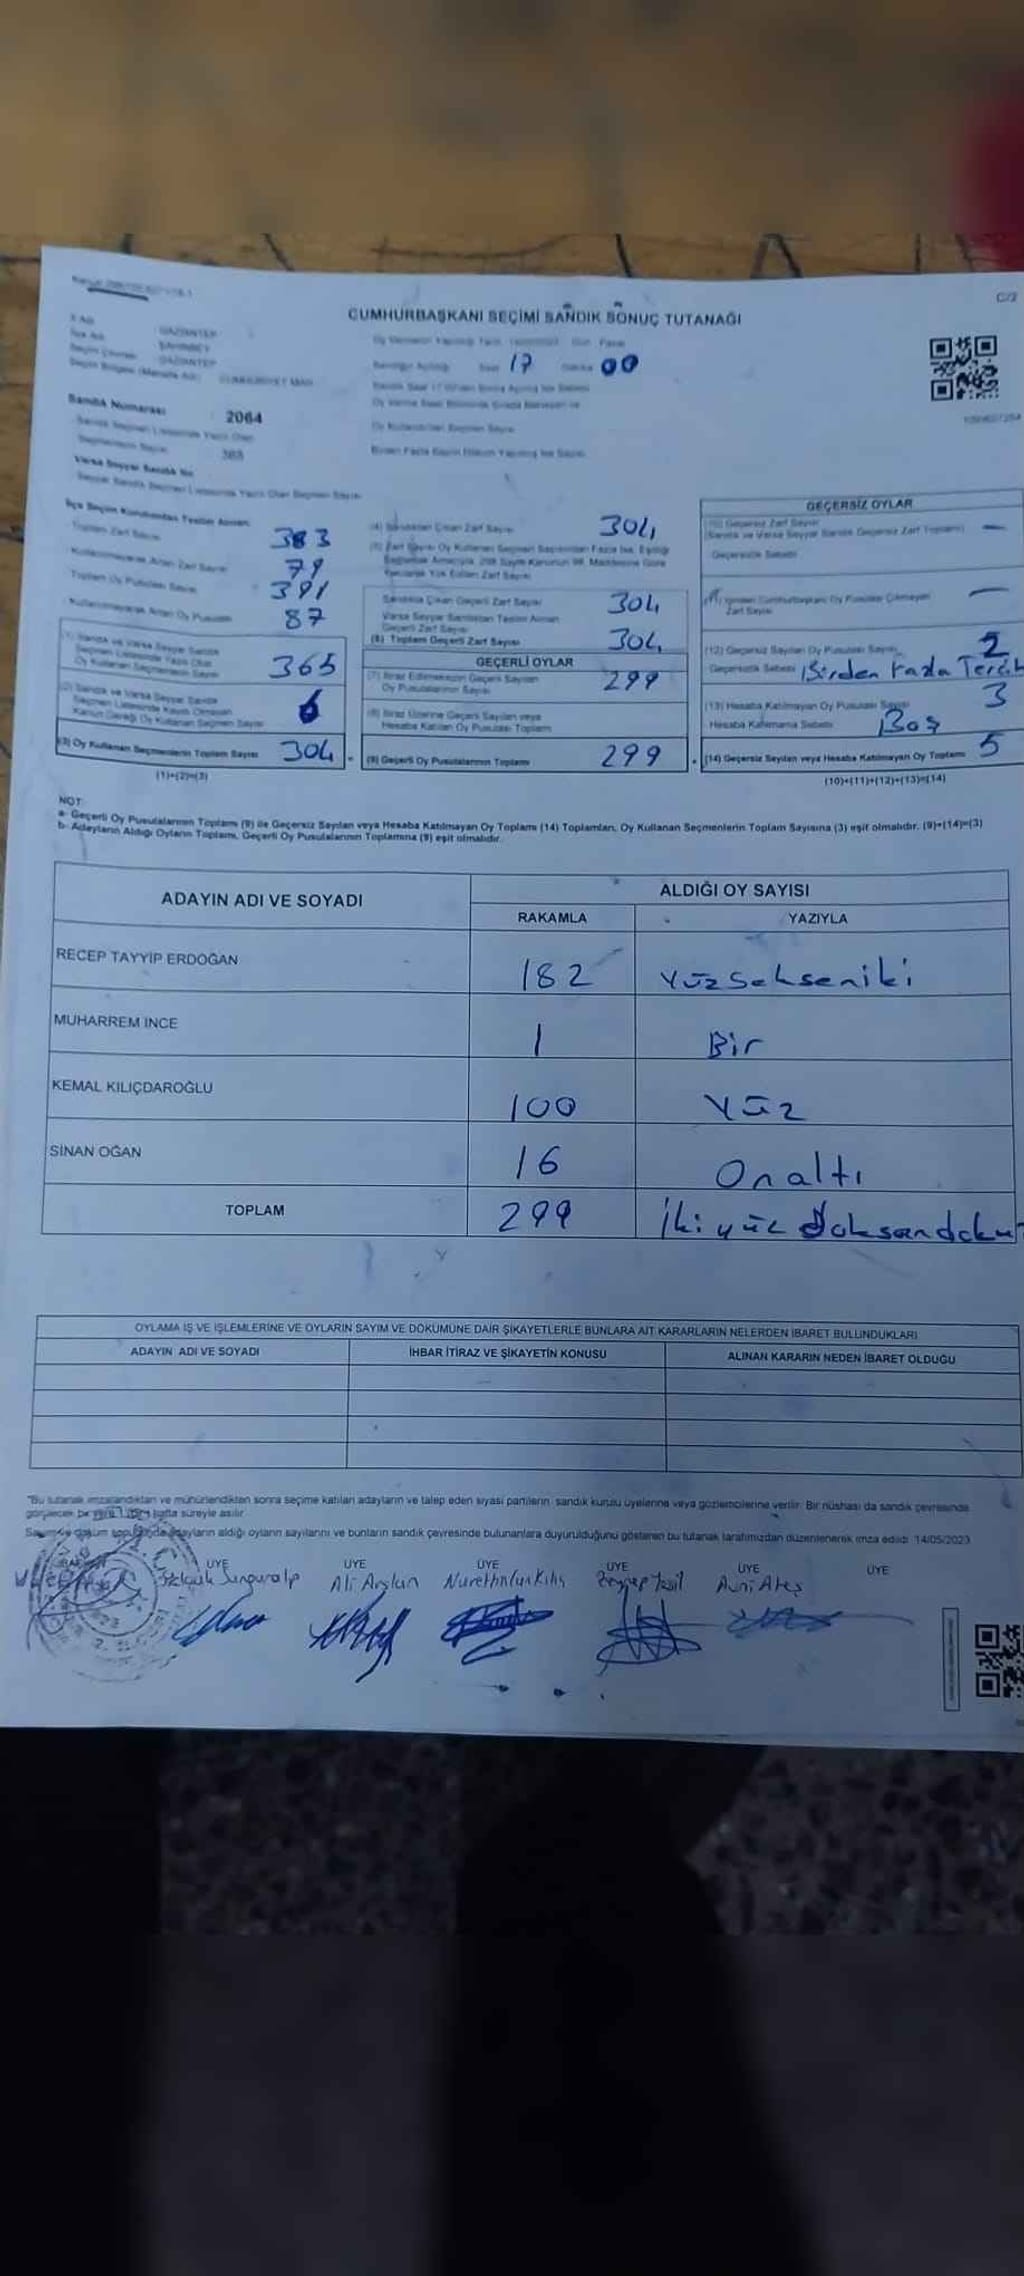 C/2
CUMHURBAŞKANI SEÇİMİ SANDIK SONUÇ TUTANAĞI
İl Adı GAZİANTEP
İlçe Adı ŞAHİNBEY
Seçim Çevresi GAZİANTEP
CUMHURİYET MAH
Saat 17 00
Sandık Numarası 2064
Sandık Seçmen Listesinde Yazılı Olan
Seçmenlerin Sayısı
Varsa Seyyar Sandık No
Seyyar Sandık Seçmen Listesinde Yazılı Olan Seçmen Sayısı
Oy Kullandırılan Seçmen Sayısı
İlçe Seçim Kurulundan Teslim Alınan
Toplam Zarf Sayısı 383
Kullanılmayarak Artan Zarf Sayısı 79
Toplam Oy Pusulası Sayısı 391
Kullanılmayarak Artan Oy Pusulası 87
(1) Sandık ve Varsa Seyyar Sandık
Seçmen Listesinde Yazılı Olan
Oy Kullanan Seçmenlerin Sayısı 365
(2) Sandık ve Varsa Seyyar Sandık
Seçmen Listesinde Kayıtlı Olmayan
Kanun Gereği Oy Kullanan Seçmen Sayısı
(3) Oy Kullanan Seçmenlerin Toplam Sayısı 304
(1)+(2)=(3)
(4) Sandıktan Çıkan Zarf Sayısı 304
(5) Zarf Sayısı Oy Kullanan Seçmen Sayısından Fazla İse, Eşitliği
Sağlamak Amacıyla, 298 Sayılı Kanunun 98. Maddesine Göre
Yakılarak Yok Edilen Zarf Sayısı
Sandıkta Çıkan Geçerli Zarf Sayısı 304
Varsa Seyyar Sandıktan Teslim Alınan
Geçerli Zarf Sayısı
(6) Toplam Geçerli Zarf Sayısı 304
GEÇERLİ OYLAR
(7) İtiraz Edilmeksizin Geçerli Sayılan
Oy Pusulalarının Sayısı 299
(8) İtiraz Üzerine Geçerli Sayılan veya
Hesaba Katılan Oy Pusulası Toplamı
(9) Geçerli Oy Pusulalarının Toplamı 299
GEÇERSİZ OYLAR
(10) Geçersiz Zarf Sayısı
(Sandık ve Varsa Seyyar Sandık Geçersiz Zarf Toplamı) —
Geçersizlik Sebebi
(11) İçinden Cumhurbaşkanı Oy Pusulası Çıkmayan
Zarf Sayısı —
(12) Geçersiz Sayılan Oy Pusulası Sayısı 2
Geçersizlik Sebebi Birden Fazla Tercih
(13) Hesaba Katılmayan Oy Pusulası Sayısı 3
Hesaba Katılmama Sebebi Boş
(14) Geçersiz Sayılan veya Hesaba Katılmayan Oy Toplamı 5
(10)+(11)+(12)+(13)=(14)
NOT:
a- Geçerli Oy Pusulalarının Toplamı (9) ile Geçersiz Sayılan veya Hesaba Katılmayan Oy Toplamı (14) Toplamları, Oy Kullanan Seçmenlerin Toplam Sayısına (3) eşit olmalıdır. (9)+(14)=(3)
b- Adayların Aldığı Oyların Toplamı, Geçerli Oy Pusulalarının Toplamına (9) eşit olmalıdır.
ADAYIN ADI VE SOYADI
ALDIĞI OY SAYISI
RAKAMLA YAZIYLA
RECEP TAYYİP ERDOĞAN 182 Yüzsekseniki
MUHARREM İNCE 1 Bir
KEMAL KILIÇDAROĞLU 100 Yüz
SİNAN OĞAN 16 Onaltı
TOPLAM 299 İkiyüz Doksandoku
OYLAMA İŞ VE İŞLEMLERİNE VE OYLARIN SAYIM VE DÖKÜMÜNE DAİR ŞİKAYETLERLE BUNLARA AİT KARARLARIN NELERDEN İBARET BULUNDUKLARI
ADAYIN ADI VE SOYADI İHBAR İTİRAZ VE ŞİKAYETİN KONUSU ALINAN KARARIN NEDEN İBARET OLDUĞU
"Bu tutanak imzalandıktan ve mühürlendikten sonra seçime katılan adayların ve talep eden siyasi partilerin sandık kurulu üyelerine veya gözlemcilerine verilir. Bir nüshası da sandık çevresinde
görülecek bir yere 1 hafta süreyle asılır
Sayım ve döküm sonucunda adayların aldığı oyların sayılarını ve bunların sandık çevresinde bulunanlara duyurulduğunu gösteren bu tutanak tarafımızdan düzenlenerek imza edildi. 14/05/2023
ÜYE ÜYE ÜYE ÜYE ÜYE ÜYE
Ali Arslan Nurettin Kılıç Zeynep Avni Ateş